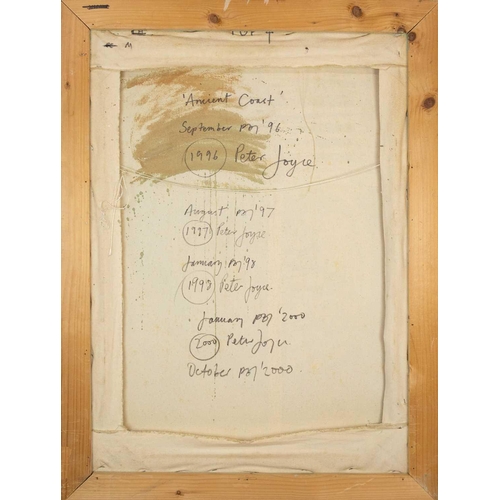 'Ancient Coast'
September PDJ '96
1996 Peter Joyce
August PDJ '97
1997 Peter Joyce
January PDJ '98
1998 Peter Joyce.
January PDJ '2000
2000 Peter Joyce
October PDJ '2000